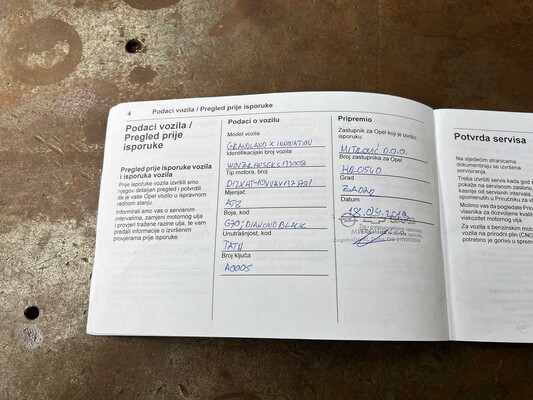 4 Podaci vozila / Pregled prije isporuke
Podaci vozila /
Pregled prije
isporuke
Pregled prije isporuke vozila
i isporuka vozila
Prije isporuke vozila izvršili smo
njegov detaljan pregled i potvrdili
da je vaše Opel vozilo u ispravnom
radnom stanju.
Informirali smo vas o servisnim
intervalima, zamjeni motornog ulja
i provjeri tražene razine ulja, te vam
predali informacije o izvršenim
provjerama prije isporuke.
Podaci o vozilu
Model vozila
GRANDLAND X INNOVATION
Identifikacijski broj vozila
Tip motora, broj
Mjenjač
AT8
Boja, kod
G70; DIAMOND BLACK
Unutrašnjost, kod
TATN
Broj ključa
A0005
Pripremio
Zastupnik za Opel koji je izvršio
isporuku
MITROVIĆ D.O.O.
Broj zastupnika za Opel
HR0540
Grad
ZADAR
Datum
18.04.2019
Potvrda servisa
Na sljedećim stranicama
dokumentiraju se izvršena
servisiranja.
Treba izvršiti servis kada god
pokaže na servisnom zaslonu,
kasnije od servisnih intervala,
spomenutih u Priručniku za vl
Molimo vas da pogledate Pri
vlasnika za dozvoljene kvalite
viskozitet motornog ulja.
Za vozila s benzinskim moto
vozila na prirodni plin (CNG
potrebno je gorivo u sprem